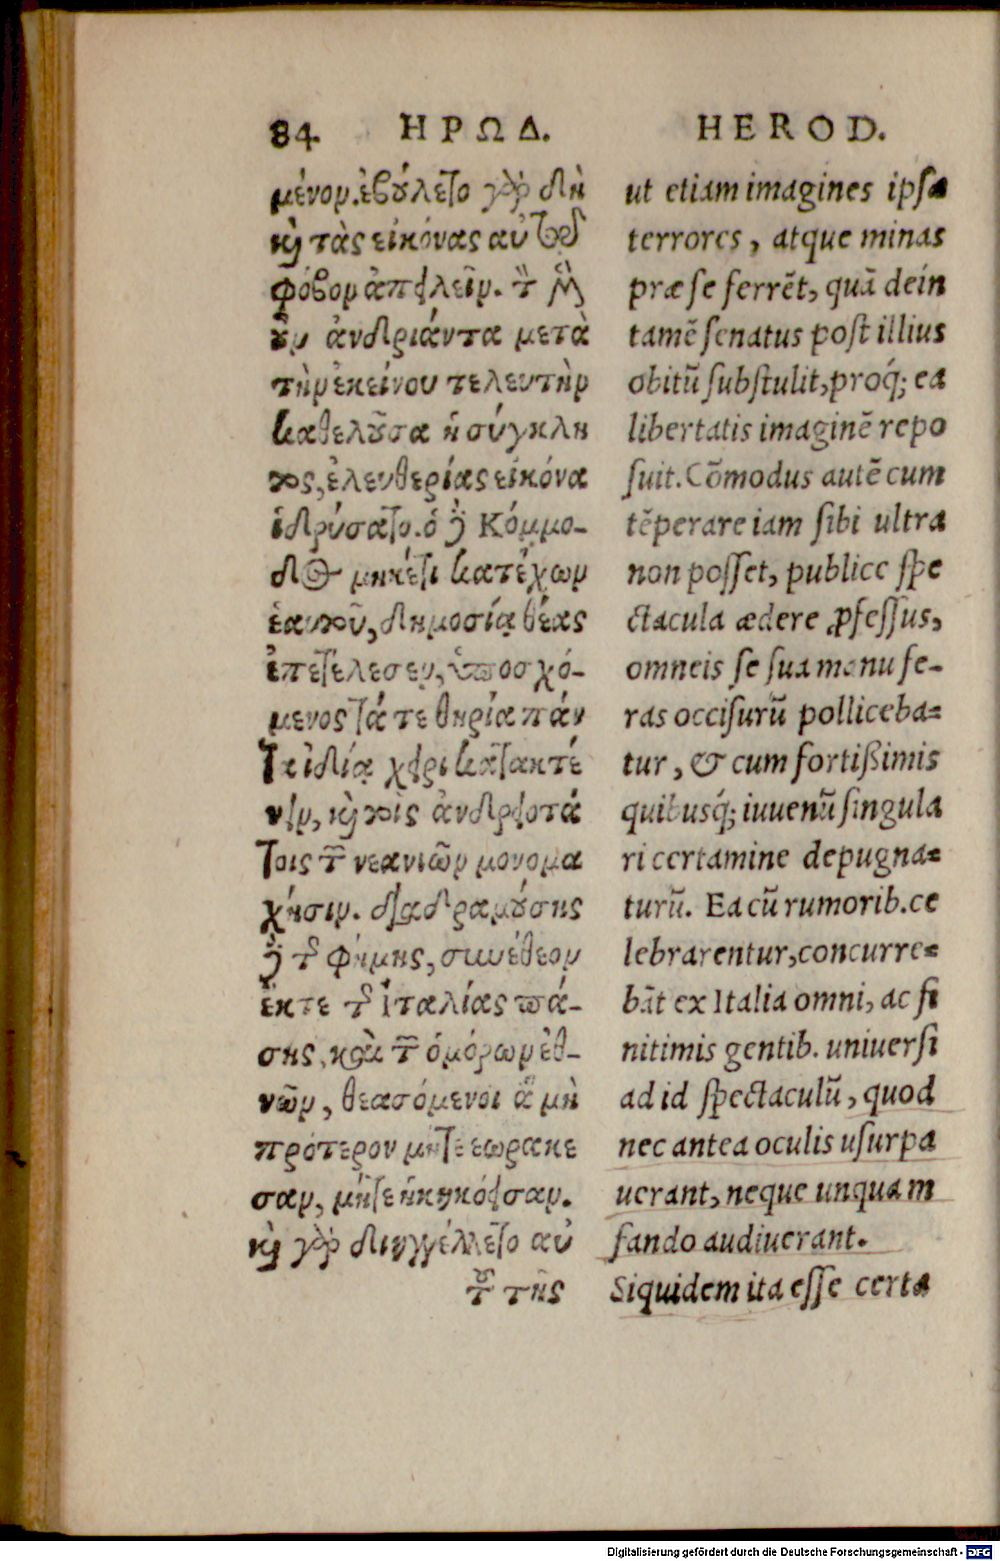 84 ΗΡΩΔ. HEROD.
μένον. ἐβούλετο γὰρ δὴ
καὶ τὰς εἰκόνας αὐτοῦ
φόβον ἀπειλεῖν. τὸν μὲν
οὖν ἀνδριάντα μετὰ
τὴν ἐκείνου τελευτὴν
καθελοῦσα ἡ σύγκλη
τος, ἐλευθερίας εἰκόνα
ἱδρύσατο. ὁ δὲ Κόμμο-
δος μηκέτι κατέχων
ἑαυτοῦ, δημοσίᾳ θέας
ἐπετέλεσεν, ὑποσχό-
μενος τά τε θηρία πάν
τα ἰδίᾳ χειρὶ κατακτέ
νειν, καὶ τοῖς ἀνδρειοτά
τοις τῶν νεανιῶν μονομα
χήσειν. διαδραμούσης
δὲ τῆς φήμης, συνέθεον
ἔκ τε τῆς Ἰταλίας πά-
σης, καὶ τῶν ὁμόρων ἐθ-
νῶν, θεασόμενοι ἃ μὴ
πρότερον μήτε ἑωράκε
σαν, μήτε ἠκηκόεισαν.
καὶ γὰρ διηγγέλλετο αὐ
τοῦ τῆς
ut etiam imagines ipsæ
terrores, atque minas
præ se ferrēt, quā dein
tamē senatus post illius
obitū substulit, proq́; ea
libertatis imaginē repo
suit. Cōmodus autē cum
tēperare iam sibi ultra
non posset, publice spe
ctacula ædere ꝓfessus,
omneis se sua manu fe-
ras occisurū polliceba-
tur, & cum fortißimis
quibusq́; iuuenū singula
ri certamine depugna-
turū. Ea cū rumorib. ce
lebrarentur, concurre-
bāt ex Italia omni, ac fi
nitimis gentib. uniuersi
ad id spectaculū, quod
nec antea oculis usurpa
uerant, neque unquam
fando audiuerant.
Siquidem ita esse certa
Digitalisierung gefördert durch die Deutsche Forschungsgemeinschaft - DFG